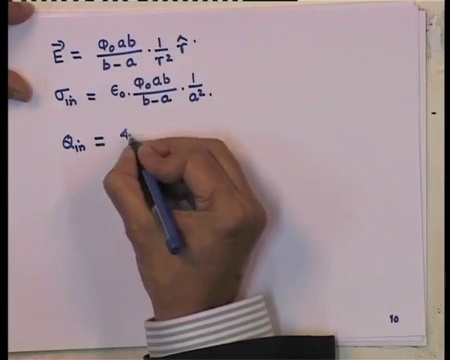 E⃗ = φ₀ab/(b−a) · 1/r² r̂.
σin = ε₀. φ₀ab/(b−a) · 1/a².
Qin = 4
10